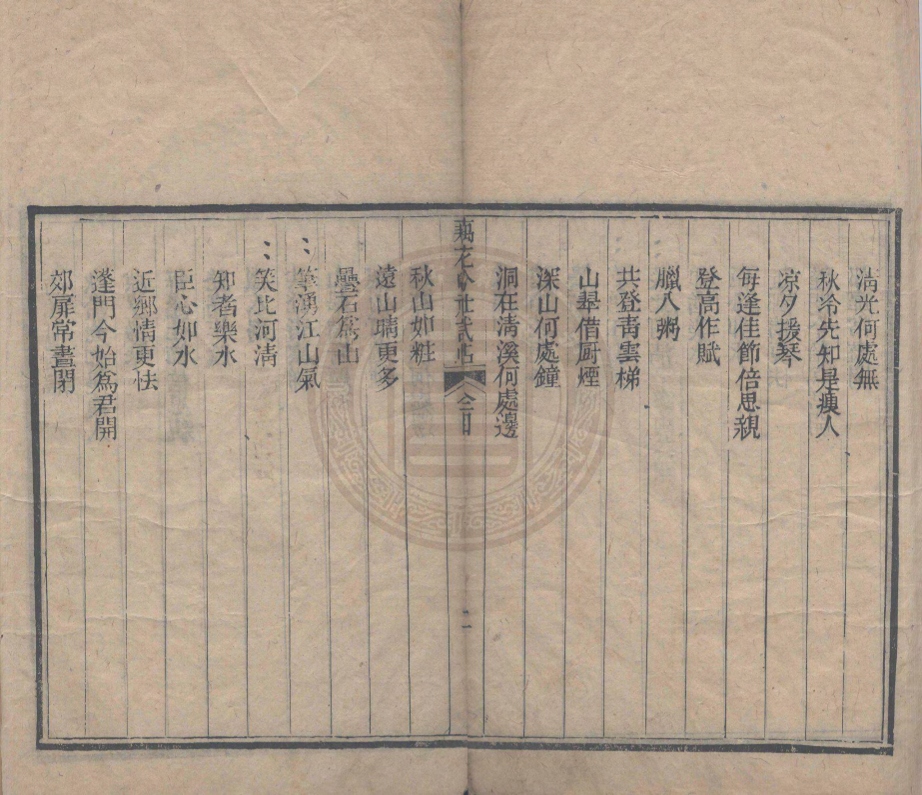 清光何處無
秋冷先知是瘐人
凉夕援琴
每逢佳節倍思親
登高作賦
臘八粥
共登青雲梯
山翠借厨煙
深山何處鐘
洞在清溪何處邊
目
二
秋山如粧
遠山晴更多
疊石爲山
筆湧江山氣
笑比河清
知者樂水
臣心如水
近鄉情更怯
蓬門今始爲君開
郊扉常晝閉